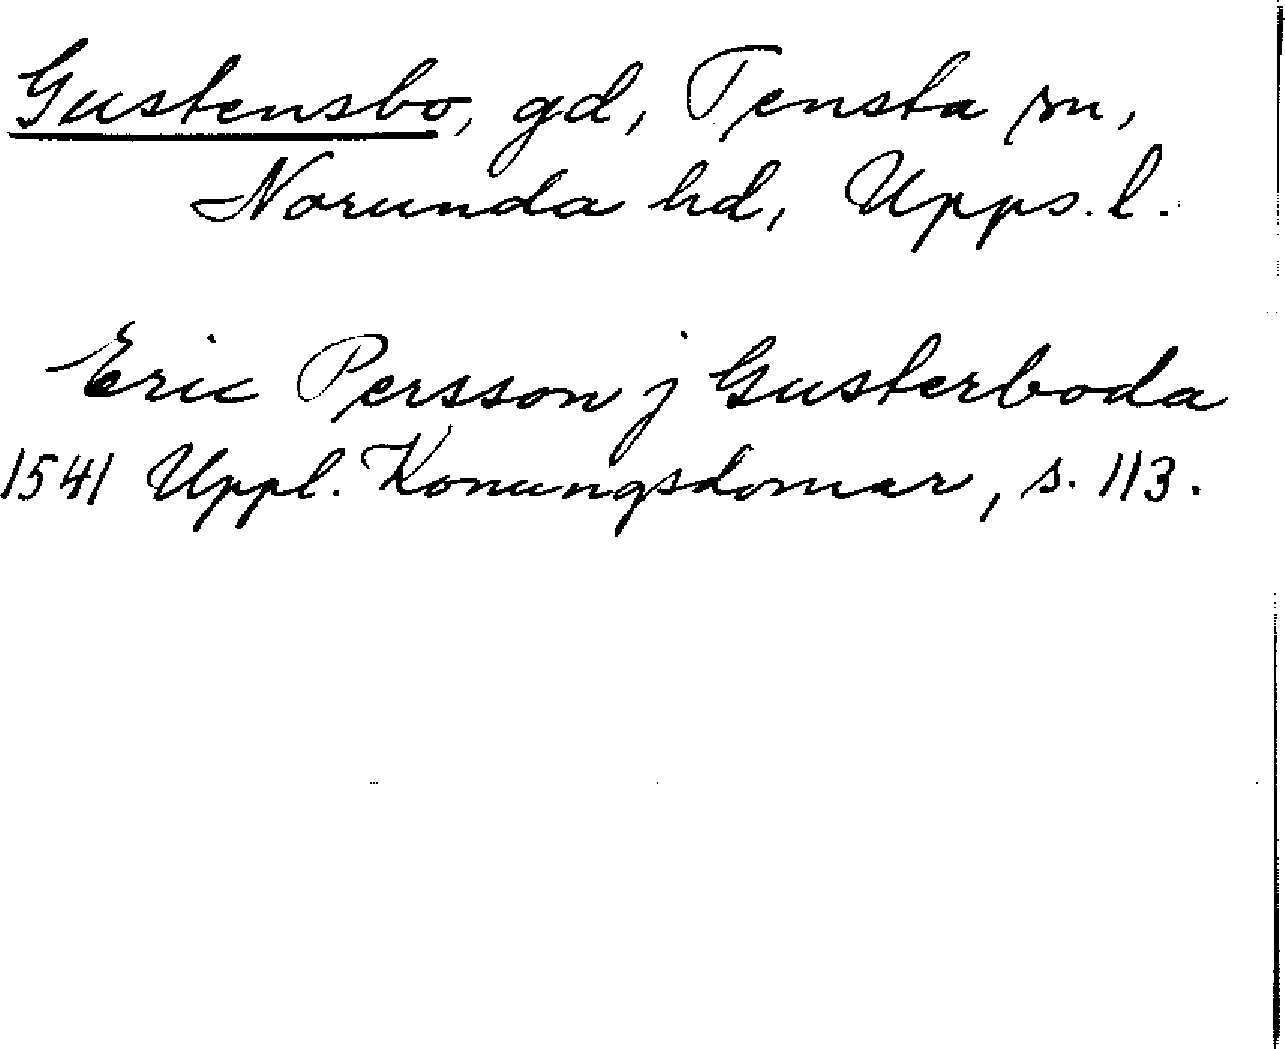 Gustensbo, gd, Tensta sn,
Norunda hd, Upps. l.
Eric Persson j Gusterboda
1541 Uppl. Konungsdomar, s. 113.